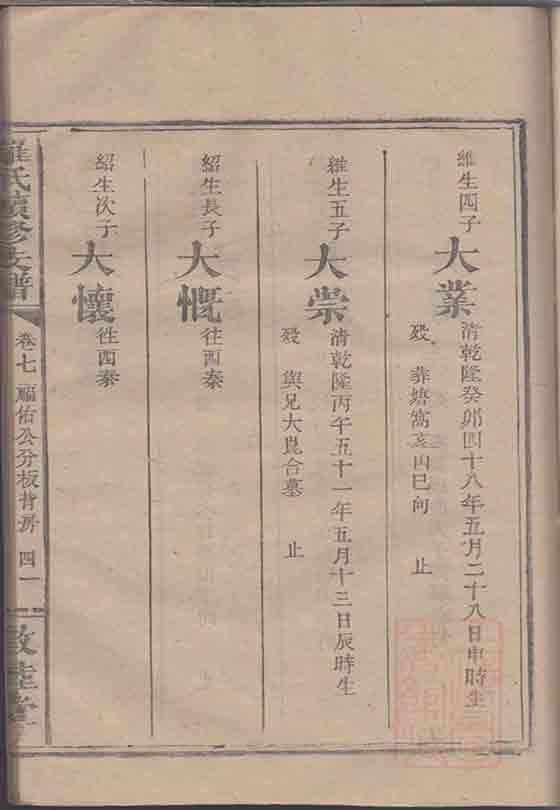 維生四子
大業
清乾隆癸卯四十八年五月二十八日申時生
歿 葬塘窩亥山巳向 止
維生五子
大崇
清乾隆丙午五十一年五月十三日辰時生
歿 與兄大崑合墓 止
紹生長子
大慨
往西秦
紹生次子
大懷
徃西秦
羅氏續修支譜
卷七 福佑公分板背房 四一
敦睦堂